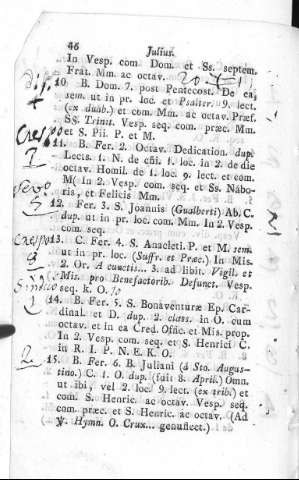 46 Julius.
In Vesp. com Dom. et Ss. septem.
Frat. Mm. ac octav.
10. B Dom. 7. post Pentecost. De ea,
sem. ut in pr. loc. et Psalter. 9. lect.
(ex duâb.) et com. Mm. ac octav. Præf.
SS. Trinit. Vesp. seq. com. præc. Mm.
et S. Pii. P. et M.
11. B. Fer. 2. Octav. Dedication. dup.
Lects. 1. N. de cñi. 1. loc. in 2. de die
octav. Homil. de 1. loc. 9. lect. et com.
M( In 2. Vesp. com. seq. et Ss. Nábo-
ris, et Felicis Mm.
12. Fer. 3. S. Joannis (Gualberti) Ab. C.
dup. ut in pr. loc. com. Mm. In 2. Vesp.
com. seq.
13. C. Fer. 4. S. Anacleti. P. et M. sem.
ut in pr. loc. (Suffr. et Præc.) In Mis.
2. Or. A cunctis... 3. ad libit. Vigil. et
Mis. pro Benefactorib. Defunct. Vesp.
seq. k. O.
14. B. Fer. 5. S. Bonaventuræ Ep. Car-
dinal. et D. dup. 2. class. in O. cum
octav. et in ea Cred. Ofñc. et Mis. prop.
In 2. Vesp. com. seq. et S. Henrici C.
in R. I. P. N. E. K. O.
15. B. Fer. 6. B Juliani (à Sto. Augus-
tino.) C. 1. O. dup. (fuit 8. April.) Omn.
ut ibi, vel 2. loc. 9. lect. (ex trib.) et
com. S. Henric. ac octav. Vesp. seq.
com. præc. et S. Henric. ac octav. (Ad
℣. Hymn. O. Crux... genuflect.)
Crespo
7
5
Crespo
8
1
2